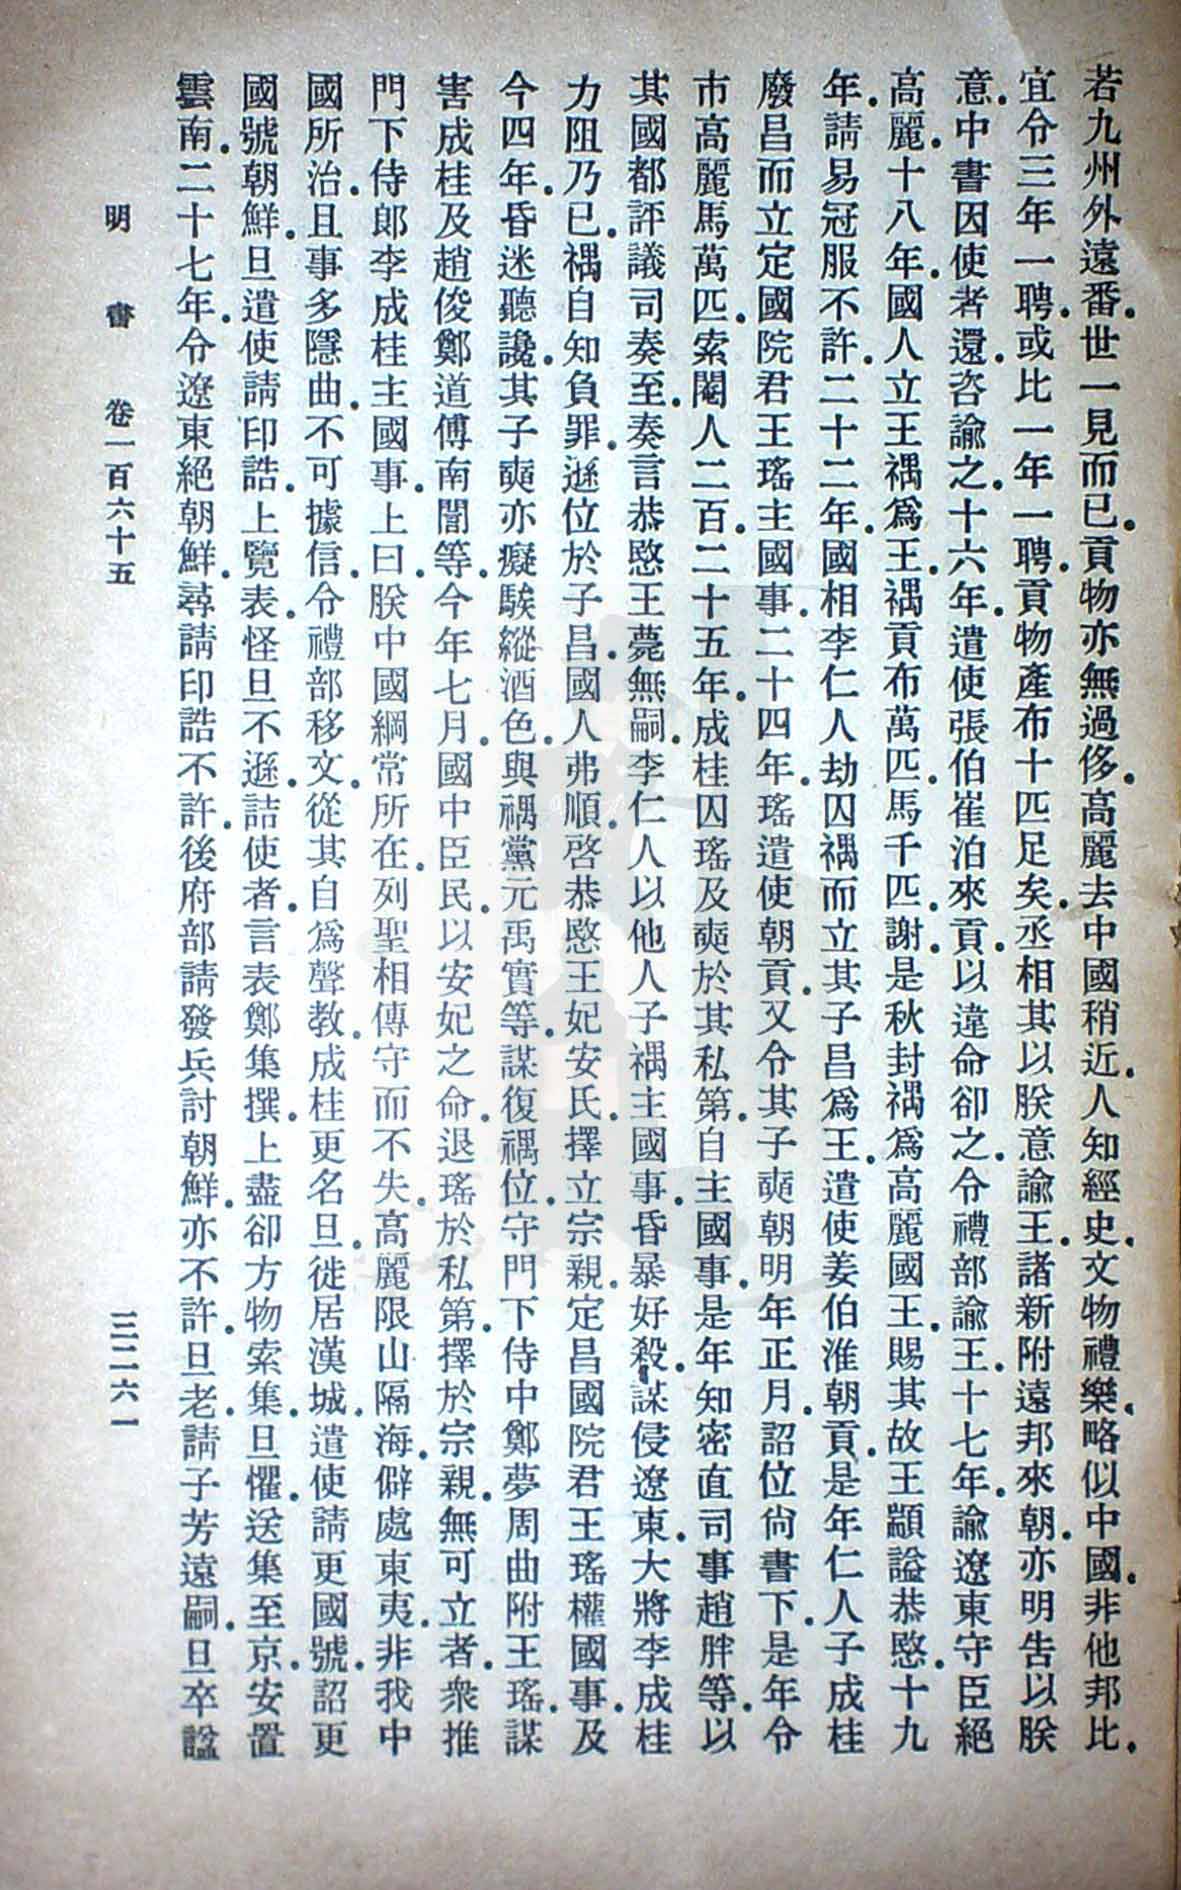 若九州外遠番。世一見而已。貢物亦無過侈。高麗去中國稍近。人知經史。文物禮樂。略似中國。非他邦比。
宜令三年一聘。或比一年一聘。貢物產布十匹足矣。丞相其以朕意諭王。諸新附遠邦來朝。亦明告以朕
意。中書因使者還。咨諭之。十六年。遣使張伯崔泊來貢。以違命卻之。令禮部諭王。十七年。諭遼東守臣絕
高麗。十八年。國人立王禑爲王。禑貢布萬匹。馬千匹。謝。是秋封禑爲高麗國王。賜其故王顓謚恭愍。十九
年。請易冠服不許。二十二年。國相李仁人劫囚禑而立其子昌爲王。遣使姜伯淮朝貢。是年仁人子成桂
廢昌而立定國院君王瑤主國事。二十四年。瑤遣使朝貢。又令其子奭朝明年正月。詔位尙書下。是年令
市高麗馬萬匹。索閹人二百。二十五年。成桂囚瑤及奭於其私第。自主國事。是年知密直司事趙胖等。以
其國都評議司奏至。奏言恭愍王薨無嗣。李仁人以他人子禑主國事。昏暴好殺。謀侵遼東。大將李成桂
力阻乃已。禑自知負罪。遜位於子昌。國人弗順。啓恭愍王妃安氏。擇立宗親。定昌國院君王瑤權國事。及
今四年。昏迷聽讒。其子奭亦癡騃縱酒色。與禑黨元禹實等。謀復禑位。守門下侍中鄭夢周曲附王瑤。謀
害成桂及趙俊鄭道傅南誾等。今年七月。國中臣民。以安妃之命。退瑤於私第。擇於宗親。無可立者。衆推
門下侍郞李成桂主國事。上曰。朕中國綱常所在。列聖相傳守而不失。高麗限山隔海。僻處東夷。非我中
國所治。且事多隱曲。不可據信。令禮部移文。從其自爲聲教。成桂更名旦。徙居漢城。遣使請更國號。詔更
國號朝鮮。旦遣使請印誥。上覽表。怪旦不遜。詰使者。言表鄭集撰。上盡卻方物索集。旦懼。送集至京。安置
雲南。二十七年。令遼東絕朝鮮。尋請印誥不許。後府部請發兵討朝鮮。亦不許。旦老。請子芳遠嗣。旦卒諡
明書 卷一百六十五 三二六一